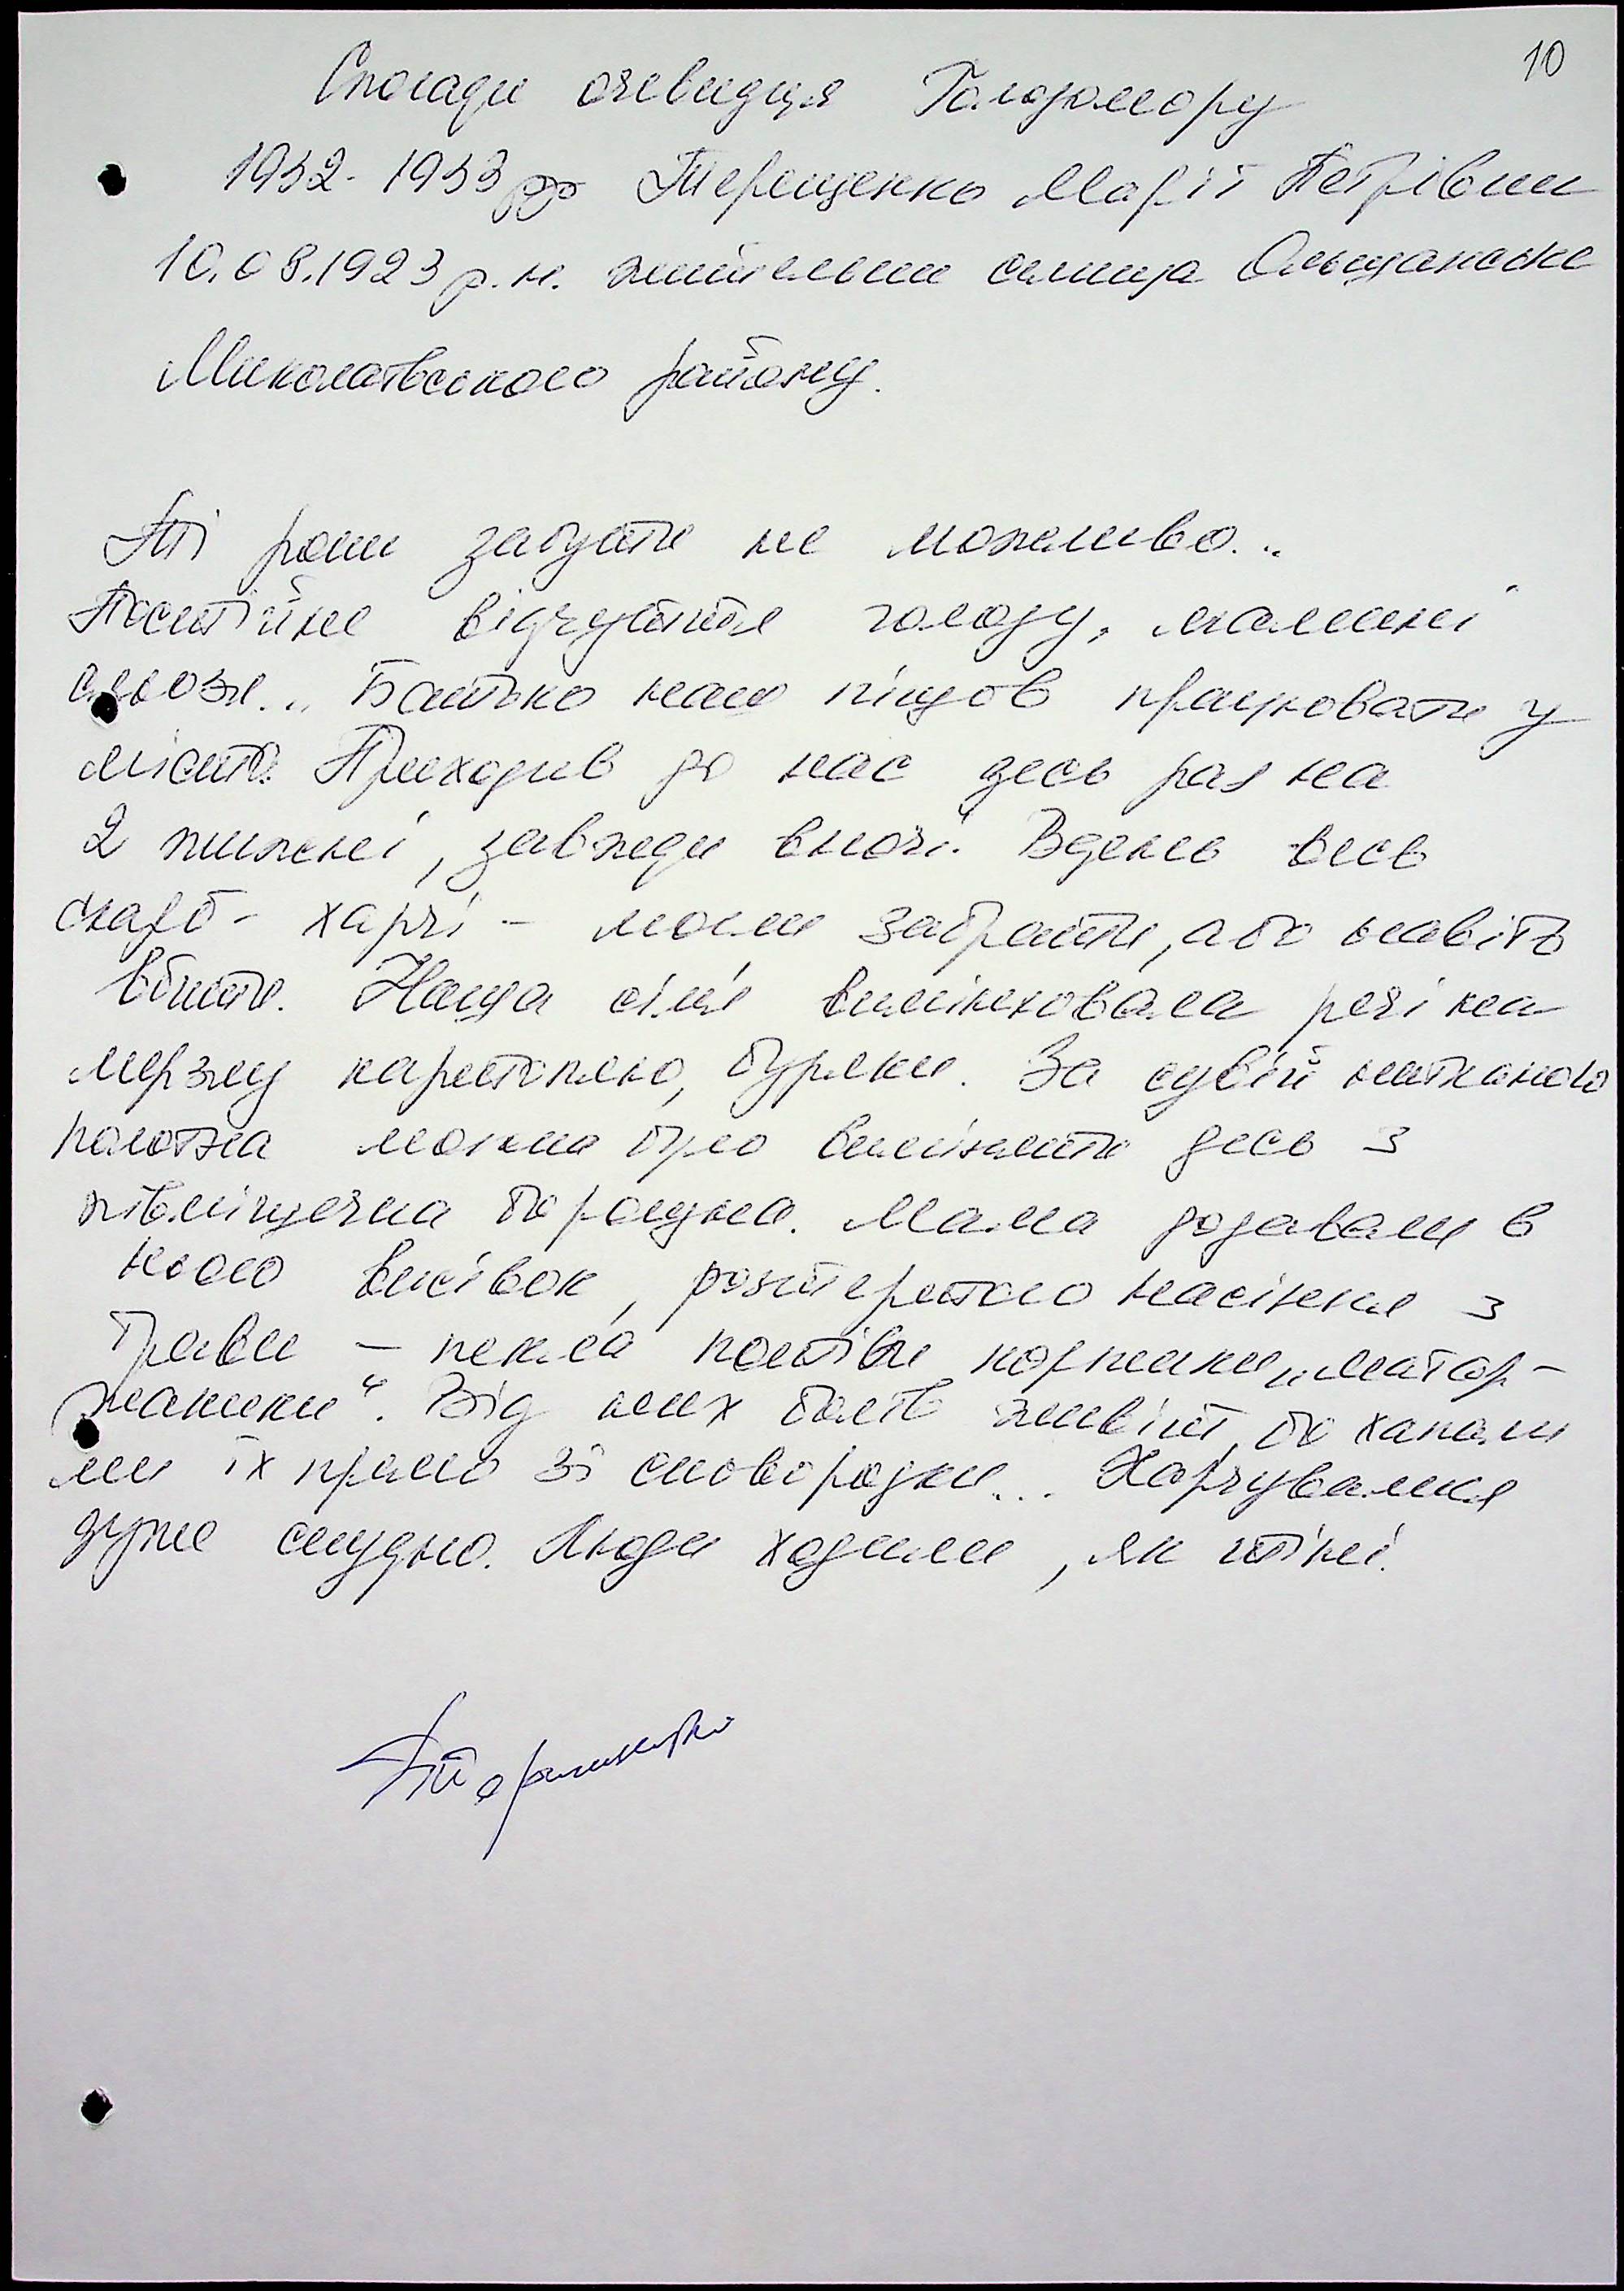 10
Спогади очевидця Голодомору
1932-1933 рр Терещенко Марії Петрівни
10.08.1923 р.н. жительки селища Ольшанське
Миколаївського району.
Ті роки забути не можливо...
Постійне відчуття голоду, мамині
сльози... Батько наш пішов працювати у
місто. Приходив до нас десь раз на
2 тижні, завжди вночі. Вдень весь
скарб - харчі - могли забрати, або навіть
вбити. Наша сім'я вимінювала речі на
мерзлу картоплю, буряки. За сувій натканого
полотна можна було виміняти десь з
півмішечка борошна. Мама додавали в
нього висівок, розтертого насіння з
трави - пекла пухтіли коржики „матор-
жаники". Від них болів живіт, бо хапали
ми їх прямо зі сковородки... Харчування
дуже скудно. Люди ходили, як тіні.